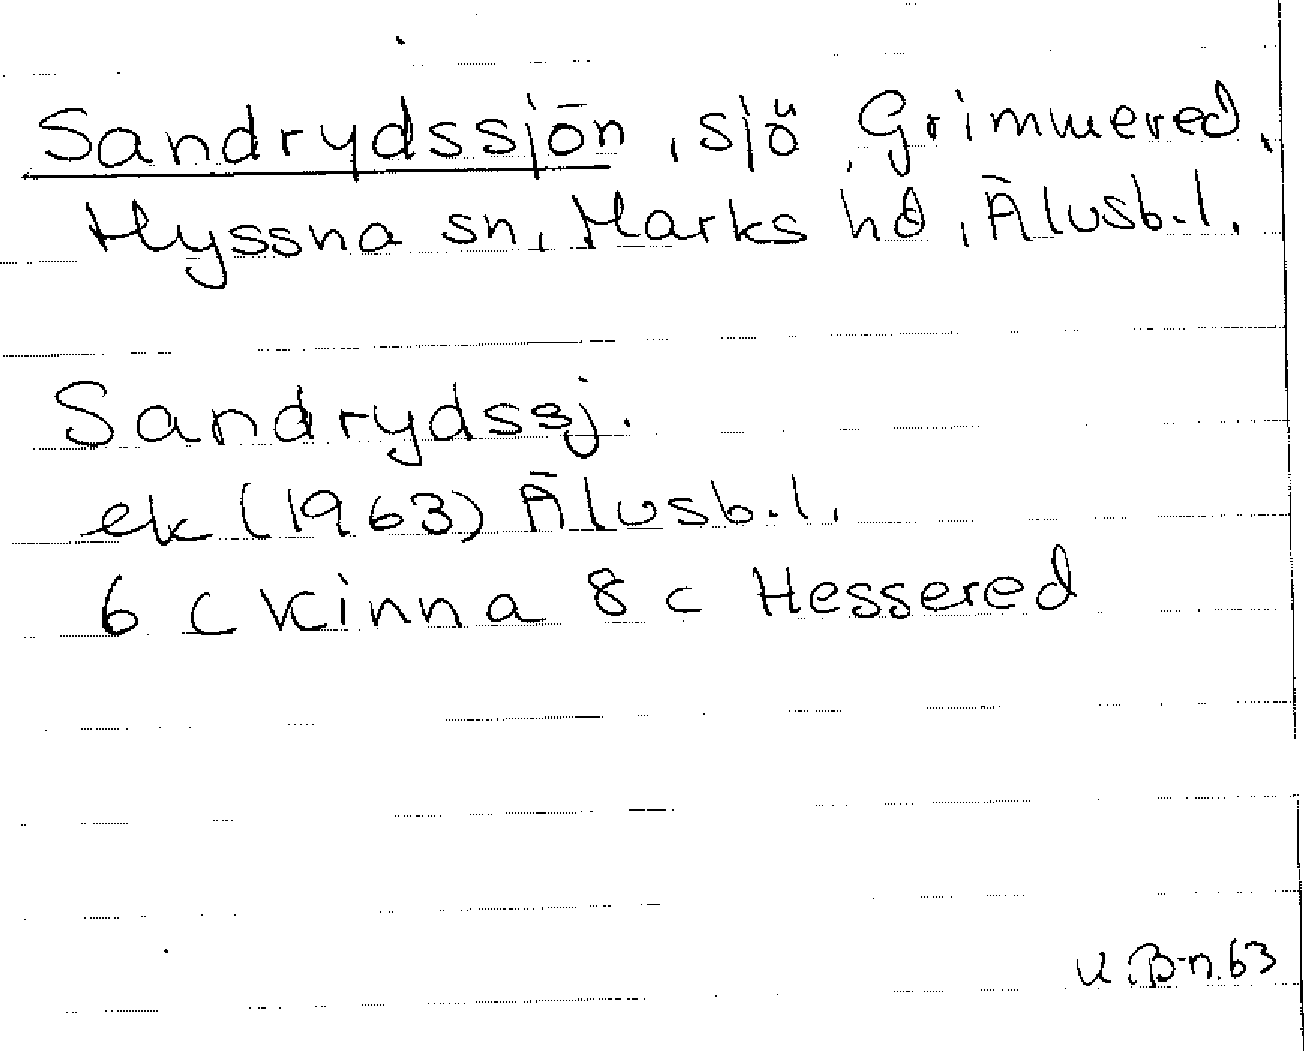 Sandrydssjön, sjö, Grimmered,
Hyssna sn, Marks hd, Älvsb.l.
Sandrydssj.
ek (1963) Älvsb.l.
6 C Kinna 8 c Hessered
K.B-n.63